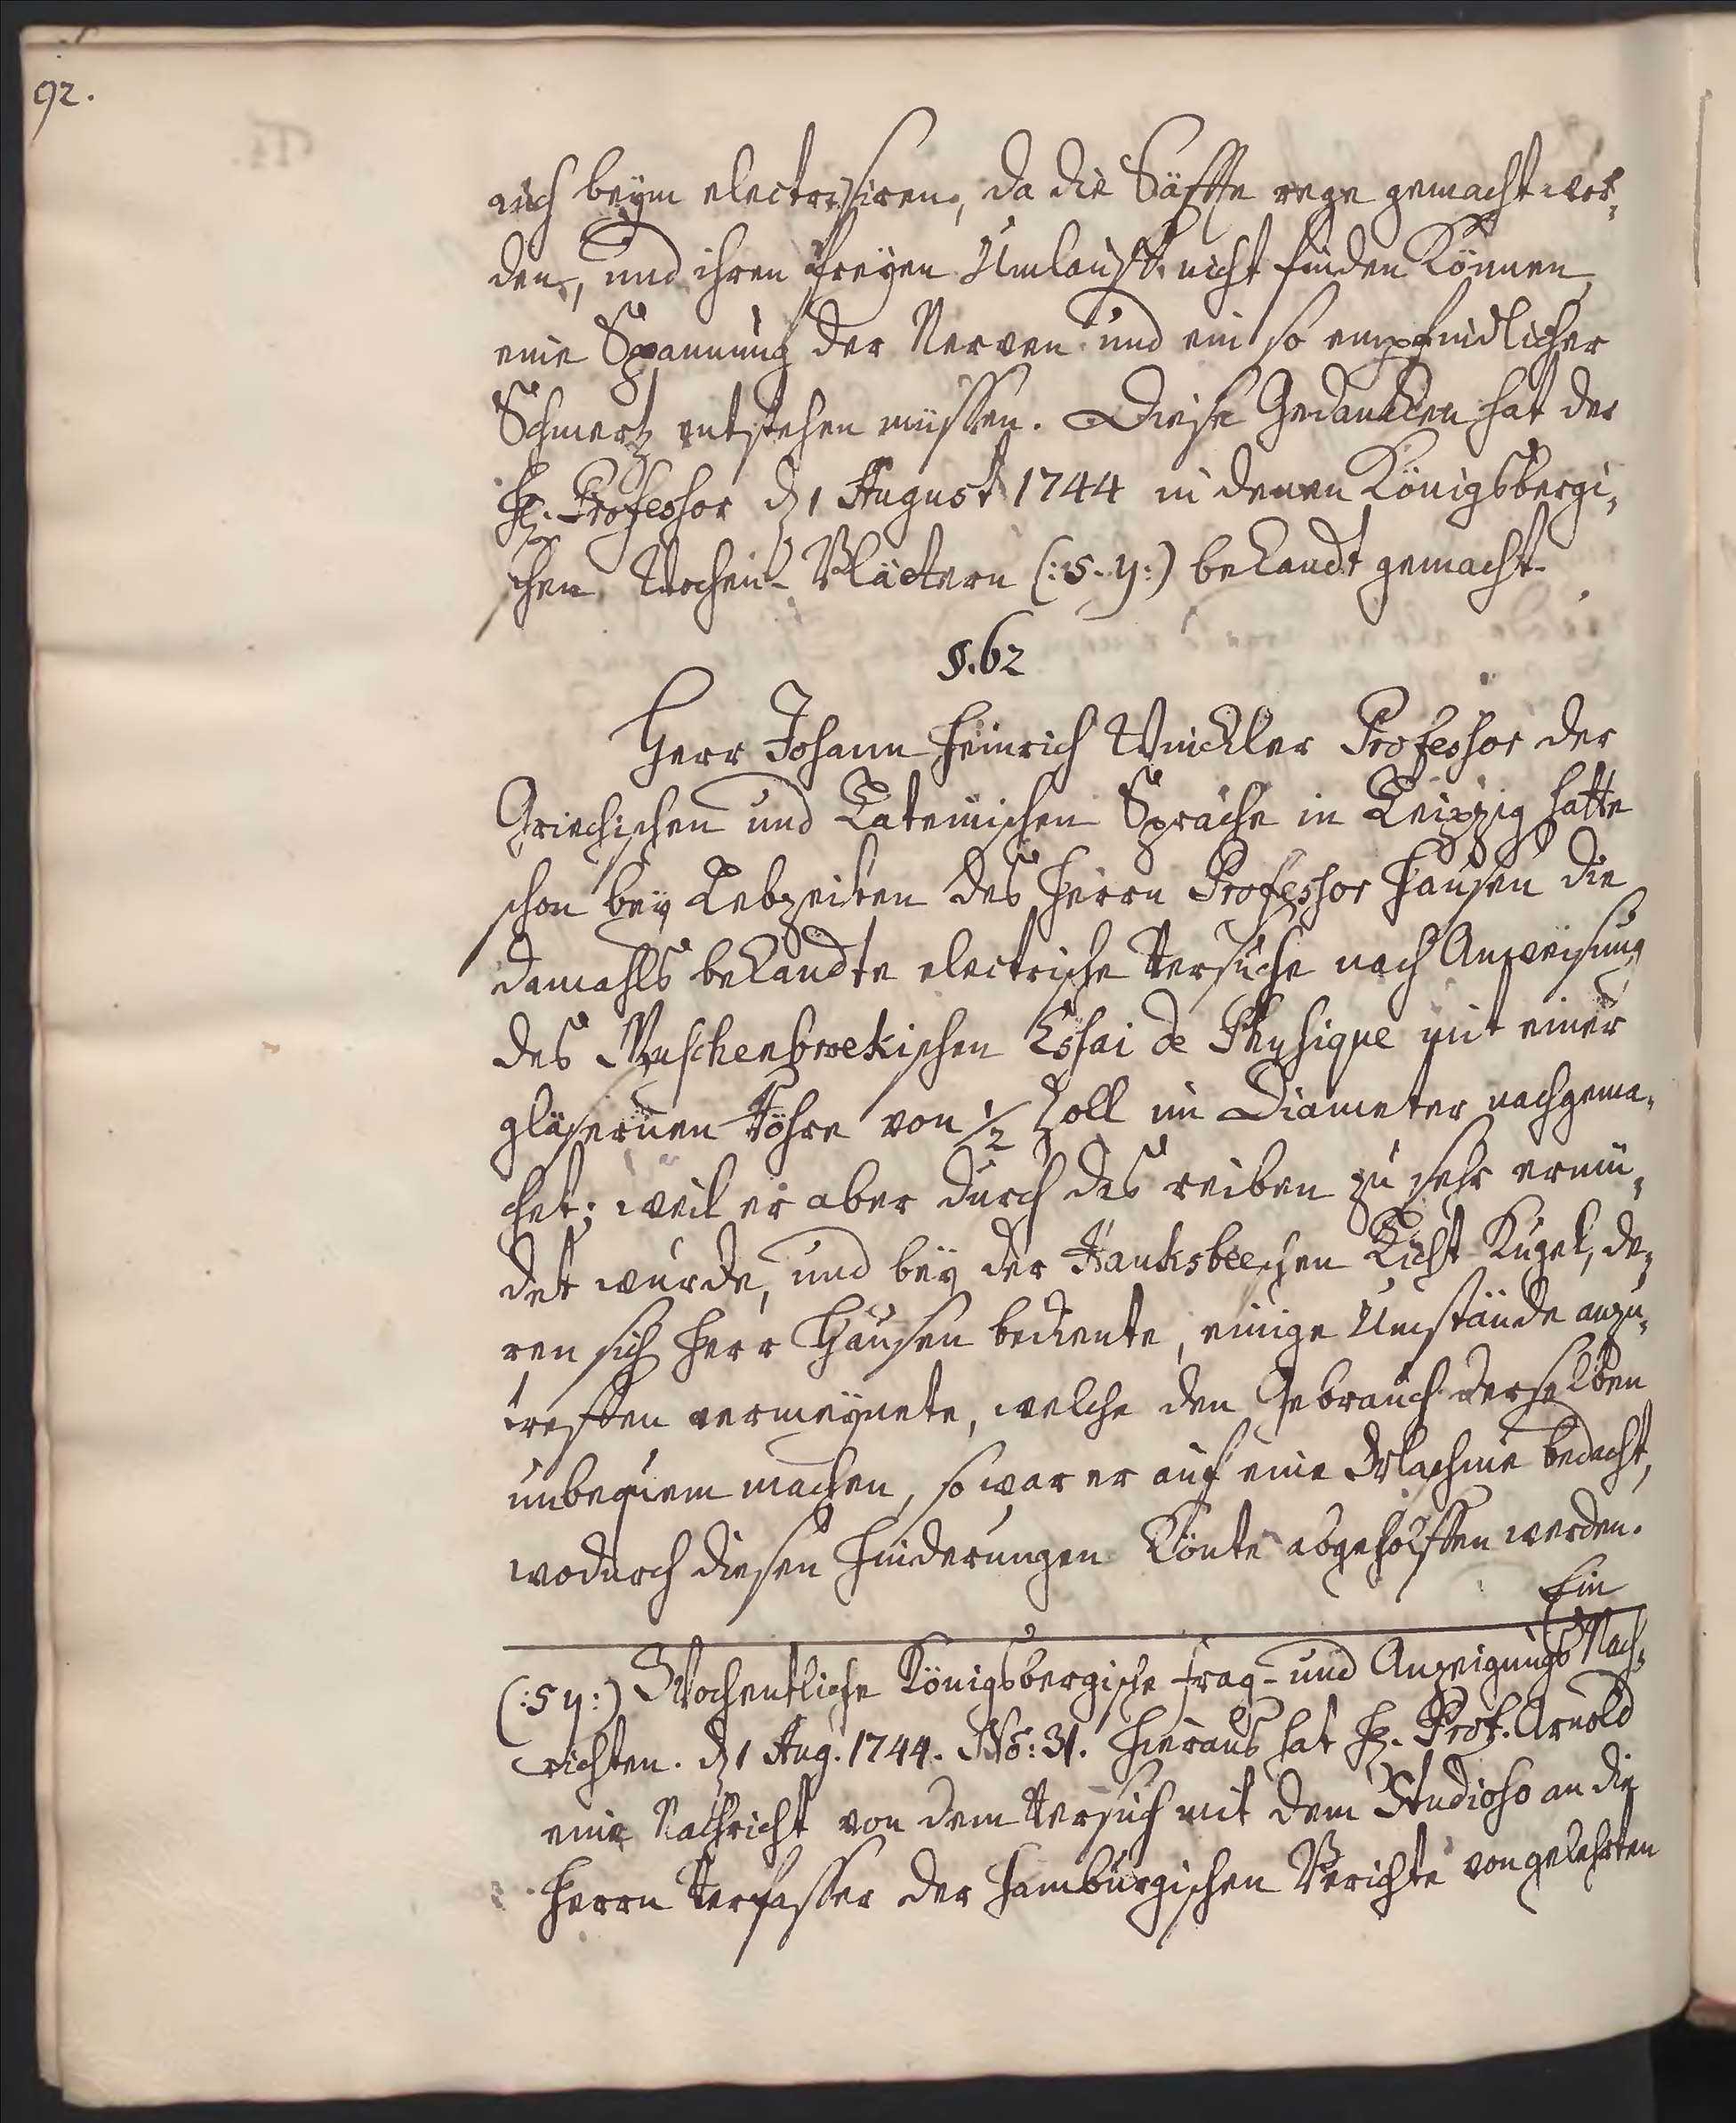 92.
auch beym electrisiren, da die Säffte rege gemacht wor¬
den, und ihren freyen Umlaufft nicht finden können,
eine Spannung der Nerven und ein so empfindlicher
Schmertz entstehen müssen. Diese Gedancken hat der
H. Professor d 1 August 1744 in denen Königsbergi¬
schen Wochen-Blättern (:5.y:) bekandt gemacht.
§.62
Herr Johann Heinrich Winckler Professor der
Griechischen und Lateinischen Sprache in Leipzig hatte
schon bey Lebzeiten des Herrn Professor Hausen die
damahls bekandte electrische Versuche nach Anweisung
des Muschenbroekischen Essai de Physique mit einer
gläsernen Röhre von 1/2 Zoll im Diameter nachgema¬
chet; weil er aber durch das reiben zu sehr ermü¬
det wurde, und bey der Hauksbeeschen Licht-Kugel, de¬
ren sich Herr Hausen bediente, einige Umstände anzu¬
treffen vermeynete, welche den Gebrauch derselben
unbequem machen, so war er auf eine Maschine bedacht,
wodurch diesen Hinderungen könte abgeholffen werden.
Ein
(:5 y:) Wochentliche Königsbergische Frag- und Anzeigungs Nach¬
richten. d 1 Aug. 1744. No: 31. Hieraus hat H. Prof. Arnold
eine Nachricht von dem Versuch mit dem Studioso an die
Herrn Verfasser der Hamburgischen Berichte von gelehrten